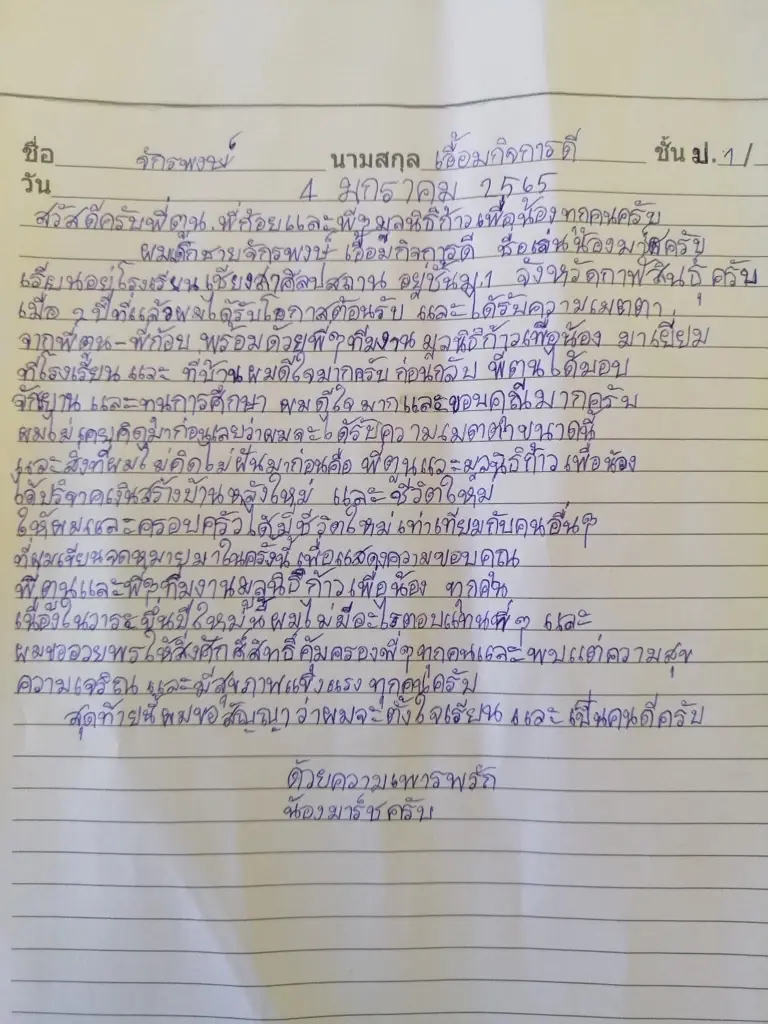 ชื่อ จักรพงษ์ นามสกุล เอื้อมกิจการดี ชั้น ป. 1/
วัน 4 มกราคม 2565
สวัสดีครับพี่ตูน พี่ก้อยและพี่ๆมูลนิธิก้าวเพื่อน้องทุกคนครับ
ผมเด็กชายจักรพงษ์ เอื้อมกิจการดี ชื่อเล่นน้องมาร์ชครับ
เรียนอยู่โรงเรียน เชียงสาศิลปสถาน อยู่ชั้นม.1 จังหวัดกาฬสินธุ์ ครับ
เมื่อ 2 ปีที่แล้วผมได้รับโอกาสต้อนรับ และได้รับความเมตตา
จากพี่ตูน-พี่ก้อย พร้อมด้วยพี่ๆทีมงาน มูลนิธิก้าวเพื่อน้อง มาเยี่ยม
ที่โรงเรียน และ ที่บ้านผมดีใจมากครับ ก่อนกลับ พี่ตูนได้มอบ
จักยาน และทุนการศึกษา ผมดีใจมากและขอบคุณมากครับ
ผมไม่เคยคิดมาก่อนเลยว่าผมจะได้รับความเมตตาขนาดนี้
และสิ่งที่ผมไม่คิดไม่ฝันมาก่อนคือ พี่ตูนและมูลนิธิก้าวเพื่อน้อง
ได้บริจาคเงินสร้างบ้านหลังใหม่ และชีวิตใหม่
ให้ผมและครอบครัวได้มีชีวิตใหม่เท่าเทียมกับคนอื่นๆ
ที่ผมเขียนจดหมายมาในครั้งนี้ เพื่อแสดงความขอบคุณ
พี่ตูนและพี่ๆทีมงานมูลนิธิก้าวเพื่อน้อง ทุกคน
เนื่องในวาระขึ้นปีใหม่นี้ผมไม่มีอะไรตอบแทนพี่ๆ และ
ผมขออวยพรให้สิ่งศักสิ์สิทธิ์คุ้มครองพี่ๆทุกคนและพบแต่ความสุข
ความเจริญ และมีสุขภาพแข็งแรง ทุกคนครับ
สุดท้ายนี้ผมขอสัญญาว่าผมจะตั้งใจเรียน และเป็นคนดีครับ
ด้วยความเพารพรัก
น้องมาร์ชครับ